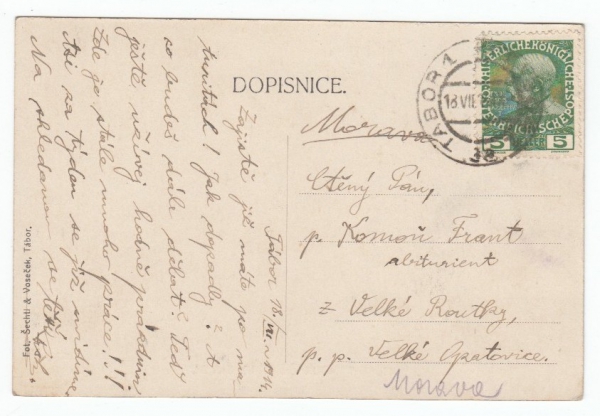 DOPISNICE.
Tábor 18/VII 1914.
Zajisté již máte po ma-
turitách! Jak dopadly? A
co budeš dále dělat? Teď
ještě užívej hodně prázdnin
Zde je stále mnoho práce!!!
Asi za týden se již uvidíme.
Na shledanou se těší
Fot. Šechtl & Voseček, Tábor.
TÁBOR 1
18 VII
3a
KAISERLICHE KÖNIGLICHE ÖSTERREICHISCHE POST
5 5
Morava
Ctěný Pán,
p. Komoň Frant
abiturient
z Velké Roudky,
p. p. Velké Opatovice.
Morava